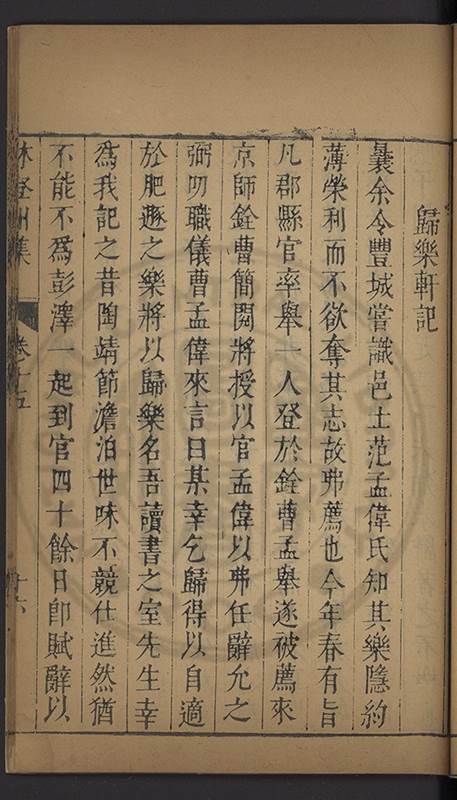 歸樂軒記
曩余令豐城嘗識邑士范孟偉氏知其樂隱約
薄榮利而不欲奪其志故弗薦也今年春有旨
凡郡縣官率舉一人登於銓曹孟舉遂被薦來
京師銓曹簡閱將授以官孟偉以弗任辭允之
弼叨職儀曹孟偉來言曰某幸乞歸得以自適
於肥遯之樂將以歸樂名吾讀書之室先生幸
為我記之昔陶靖節澹泊世味不競仕進然猶
不能不爲彭澤一起到官四十餘日卽賦辭以
林登州集 卷十五 十六